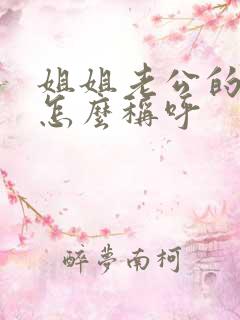 姐姐老公的
怎麼稱呼
醉夢南柯